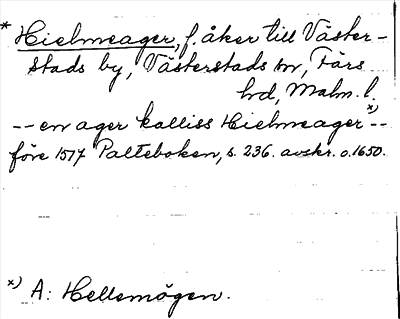 * Hielmeager, f. åker till Väster-
stads by, Västerstads sn, Färs
hd, Malm. l.
-- en ager kalliss Hielmeager x) --
före 1517 Palteboken, s. 236. avskr. o. 1650.
x) A: Hellemögen.